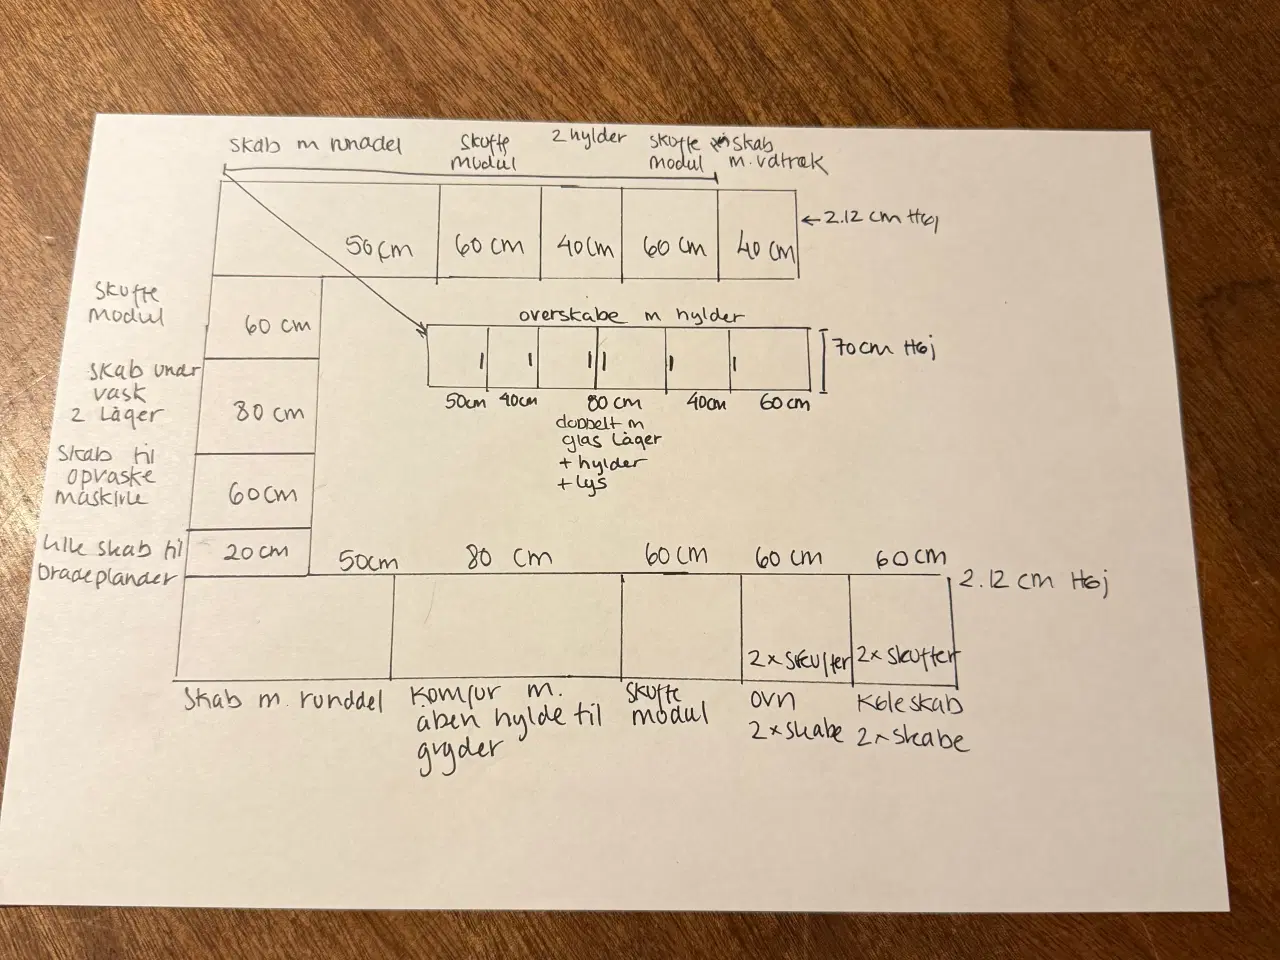 skab m runddel
skuffe
modul
2 hylder
skuffe
modul
skab
m. udtræk
50 cm
60 cm
40 cm
60 cm
40 cm
← 2.12 cm Høj
skuffe
modul
60 cm
skab under
vask
2 Låger
80 cm
skab til
opvaske
maskine
60 cm
lille skab til
bradeplander
20 cm
overskabe m hylder
70 cm Høj
50cm
40cm
80 cm
40cm
60 cm
dobbelt m
glas Låger
+ hylder
+ Lys
50cm
80 cm
60 cm
60 cm
60 cm
2.12 cm Høj
2 x skuffer
2 x skuffer
skab m. runddel
Komfur m.
åben hylde til
gryder
skuffe
modul
ovn
2 x skabe
Køleskab
2 x skabe